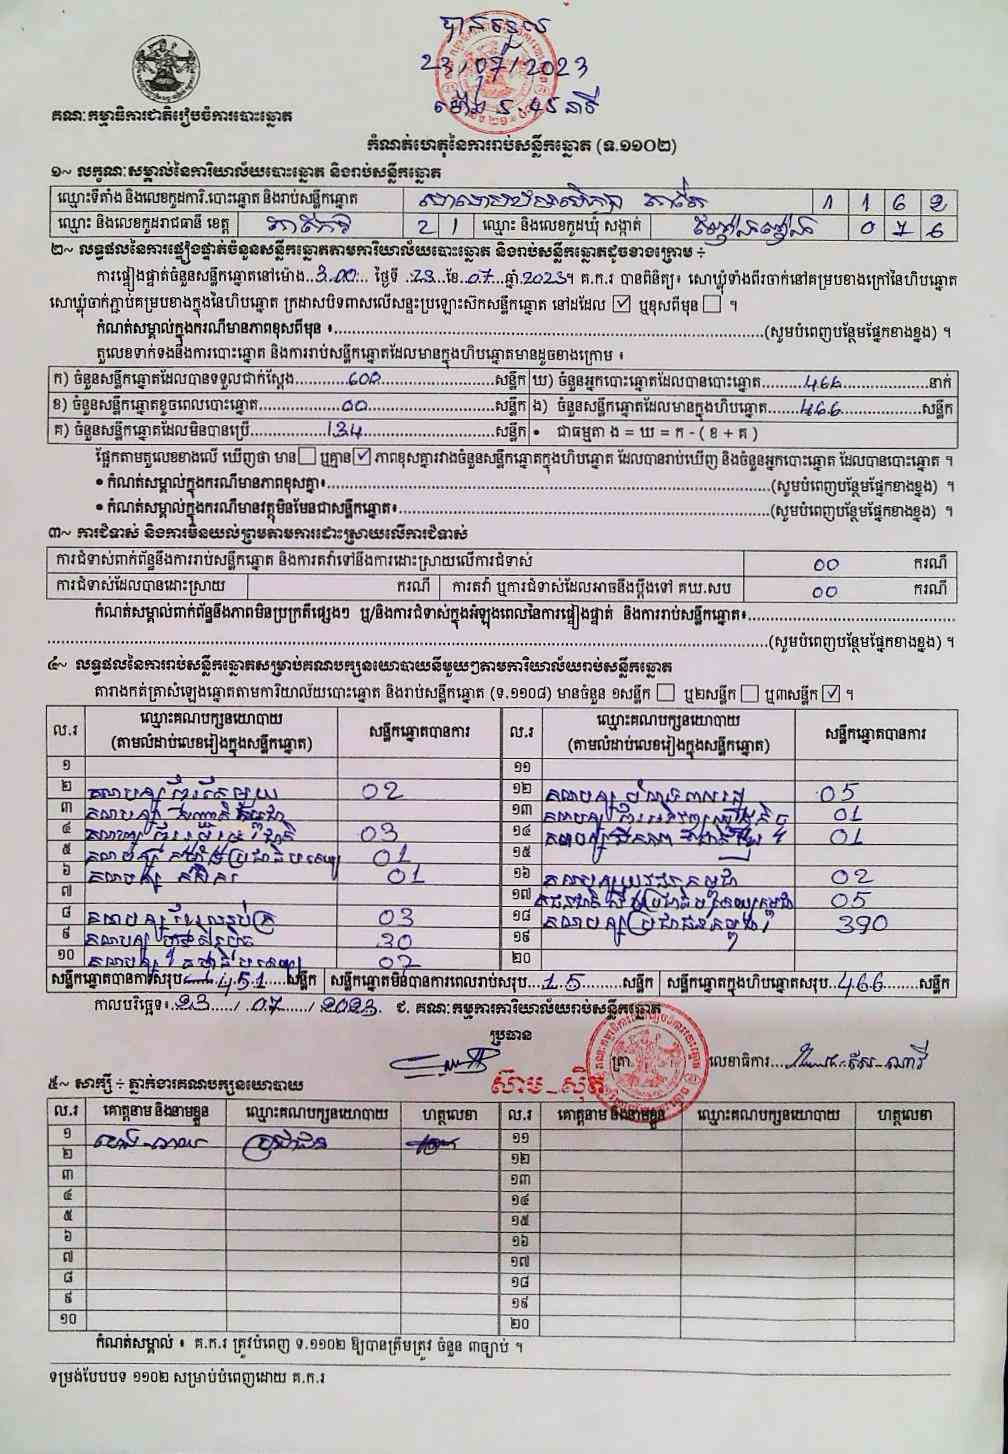 បានទទួល
23/07/2023
ម៉ោង ៥.៤៥ នាទី
គណៈកម្មាធិការជាតិរៀបចំការបោះឆ្នោត
កំណត់ហេតុនៃការរាប់សន្លឹកឆ្នោត (ទ.១១០២)
១~ លក្ខណៈសម្គាល់នៃការិយាល័យបោះឆ្នោត និងរាប់សន្លឹកឆ្នោត
ឈ្មោះទីតាំង និងលេខកូដការិ.បោះឆ្នោត និងរាប់សន្លឹកឆ្នោត 1 1 6
ឈ្មោះ និងលេខកូដរាជធានី ខេត្ត តាកែវ 2 1 ឈ្មោះ និងលេខកូដឃុំ សង្កាត់ 0 7 6
២~ លទ្ធផលនៃការផ្ទៀងផ្ទាត់ចំនួនសន្លឹកឆ្នោតតាមការិយាល័យបោះឆ្នោត និងរាប់សន្លឹកឆ្នោតដូចខាងក្រោម ÷
ការផ្ទៀងផ្ទាត់ចំនួនសន្លឹកឆ្នោតនៅម៉ោង 3.00 ថ្ងៃទី 23 ខែ 07 ឆ្នាំ 2023។ គ.ក.រ បានពិនិត្យ៖ សោឃ្លុំទាំងពីរចាក់នៅគម្របខាងក្រៅនៃហិបឆ្នោត
សោឃ្លុំចាក់ភ្ជាប់គម្របខាងក្នុងនៃហិបឆ្នោត ក្រដាសបិទពាសលើសន្ទះប្រឡោះស៊កសន្លឹកឆ្នោត នៅដដែល ☑ ឬខុសពីមុន ☐ ។
កំណត់សម្គាល់ក្នុងករណីមានភាពខុសពីមុន ៖ (សូមបំពេញបន្ថែមផ្នែកខាងខ្នង) ។
តួលេខទាក់ទងនឹងការបោះឆ្នោត និងការរាប់សន្លឹកឆ្នោតដែលមានក្នុងហិបឆ្នោតមានដូចខាងក្រោម ៖
ក) ចំនួនសន្លឹកឆ្នោតដែលបានទទួលជាក់ស្តែង 600 សន្លឹក ឃ) ចំនួនអ្នកបោះឆ្នោតដែលបានបោះឆ្នោត 466 នាក់
ខ) ចំនួនសន្លឹកឆ្នោតខូចពេលបោះឆ្នោត 00 សន្លឹក ង) ចំនួនសន្លឹកឆ្នោតដែលមានក្នុងហិបឆ្នោត 466 សន្លឹក
គ) ចំនួនសន្លឹកឆ្នោតដែលមិនបានប្រើ 134 សន្លឹក • ជាធម្មតា ង = ឃ = ក - ( ខ + គ )
ផ្អែកតាមតួលេខខាងលើ ឃើញថា មាន ☐ ឬគ្មាន ☑ ភាពខុសគ្នារវាងចំនួនសន្លឹកឆ្នោតក្នុងហិបឆ្នោត ដែលបានរាប់ឃើញ និងចំនួនអ្នកបោះឆ្នោត ដែលបានបោះឆ្នោត ។
• កំណត់សម្គាល់ក្នុងករណីមានភាពខុសគ្នា៖ (សូមបំពេញបន្ថែមផ្នែកខាងខ្នង) ។
• កំណត់សម្គាល់ក្នុងករណីមានវត្ថុមិនមែនជាសន្លឹកឆ្នោត៖ (សូមបំពេញបន្ថែមផ្នែកខាងខ្នង) ។
៣~ ការជំទាស់ និងការមិនយល់ព្រមតាមការដោះស្រាយលើការជំទាស់
ការជំទាស់ពាក់ព័ន្ធនឹងការរាប់សន្លឹកឆ្នោត និងការតវ៉ាទៅនឹងការដោះស្រាយលើការជំទាស់ 00 ករណី
ការជំទាស់ដែលបានដោះស្រាយ ករណី ការតវ៉ា ឬការជំទាស់ដែលអាចនឹងប្តឹងទៅ គឃ.សប 00 ករណី
កំណត់សម្គាល់ពាក់ព័ន្ធនឹងភាពមិនប្រក្រតីផ្សេងៗ ឬ/និងការជំទាស់ក្នុងអំឡុងពេលនៃការផ្ទៀងផ្ទាត់ និងការរាប់សន្លឹកឆ្នោត៖
(សូមបំពេញបន្ថែមផ្នែកខាងខ្នង) ។
៤~ លទ្ធផលនៃការរាប់សន្លឹកឆ្នោតសម្រាប់គណបក្សនយោបាយនីមួយៗតាមការិយាល័យរាប់សន្លឹកឆ្នោត
តារាងកត់ត្រាសំឡេងឆ្នោតតាមការិយាល័យបោះឆ្នោត និងរាប់សន្លឹកឆ្នោត (ទ.១១០៨) មានចំនួន ១សន្លឹក ☐ ឬ២សន្លឹក ☐ ឬ៣សន្លឹក ☑ ។
ល.រ ឈ្មោះគណបក្សនយោបាយ (តាមលំដាប់លេខរៀងក្នុងសន្លឹកឆ្នោត) សន្លឹកឆ្នោតបានការ ល.រ ឈ្មោះគណបក្សនយោបាយ (តាមលំដាប់លេខរៀងក្នុងសន្លឹកឆ្នោត) សន្លឹកឆ្នោតបានការ
១ ១១
២ គណបក្ស 02 ១២ គណបក្ស 05
៣ គណបក្ស ១៣ គណបក្ស 01
៤ គណបក្ស 03 ១៤ គណបក្ស 01
៥ គណបក្ស 01 ១៥
៦ គណបក្ស កសិករ 01 ១៦ គណបក្សយុវជនកម្ពុជា 02
៧ ១៧ 05
៨ គណបក្ស 03 ១៨ គណបក្សប្រជាជនកម្ពុជា 390
៩ គណបក្ស 30 ១៩
១០ គណបក្ស 02 ២០
សន្លឹកឆ្នោតបានការសរុប 451 សន្លឹក សន្លឹកឆ្នោតមិនបានការពេលរាប់សរុប 15 សន្លឹក សន្លឹកឆ្នោតក្នុងហិបឆ្នោតសរុប 466 សន្លឹក
កាលបរិច្ឆេទ៖ 23 / 07 / 2023 ជ. គណៈកម្មការការិយាល័យរាប់សន្លឹកឆ្នោត
ប្រធាន
ស៊ាម-ស៊ិត
ត្រា លេខាធិការ
៥~ សាក្សី ÷ ភ្នាក់ងារគណបក្សនយោបាយ
ល.រ គោត្តនាម និងនាមខ្លួន ឈ្មោះគណបក្សនយោបាយ ហត្ថលេខា ល.រ គោត្តនាម និងនាមខ្លួន ឈ្មោះគណបក្សនយោបាយ ហត្ថលេខា
១ ប្រជាជន ១១
២ ១២
៣ ១៣
៤ ១៤
៥ ១៥
៦ ១៦
៧ ១៧
៨ ១៨
៩ ១៩
១០ ២០
កំណត់សម្គាល់ ៖ គ.ក.រ ត្រូវបំពេញ ទ.១១០២ ឱ្យបានត្រឹមត្រូវ ចំនួន ៣ច្បាប់ ។
ទម្រង់បែបបទ ១១០២ សម្រាប់បំពេញដោយ គ.ក.រ